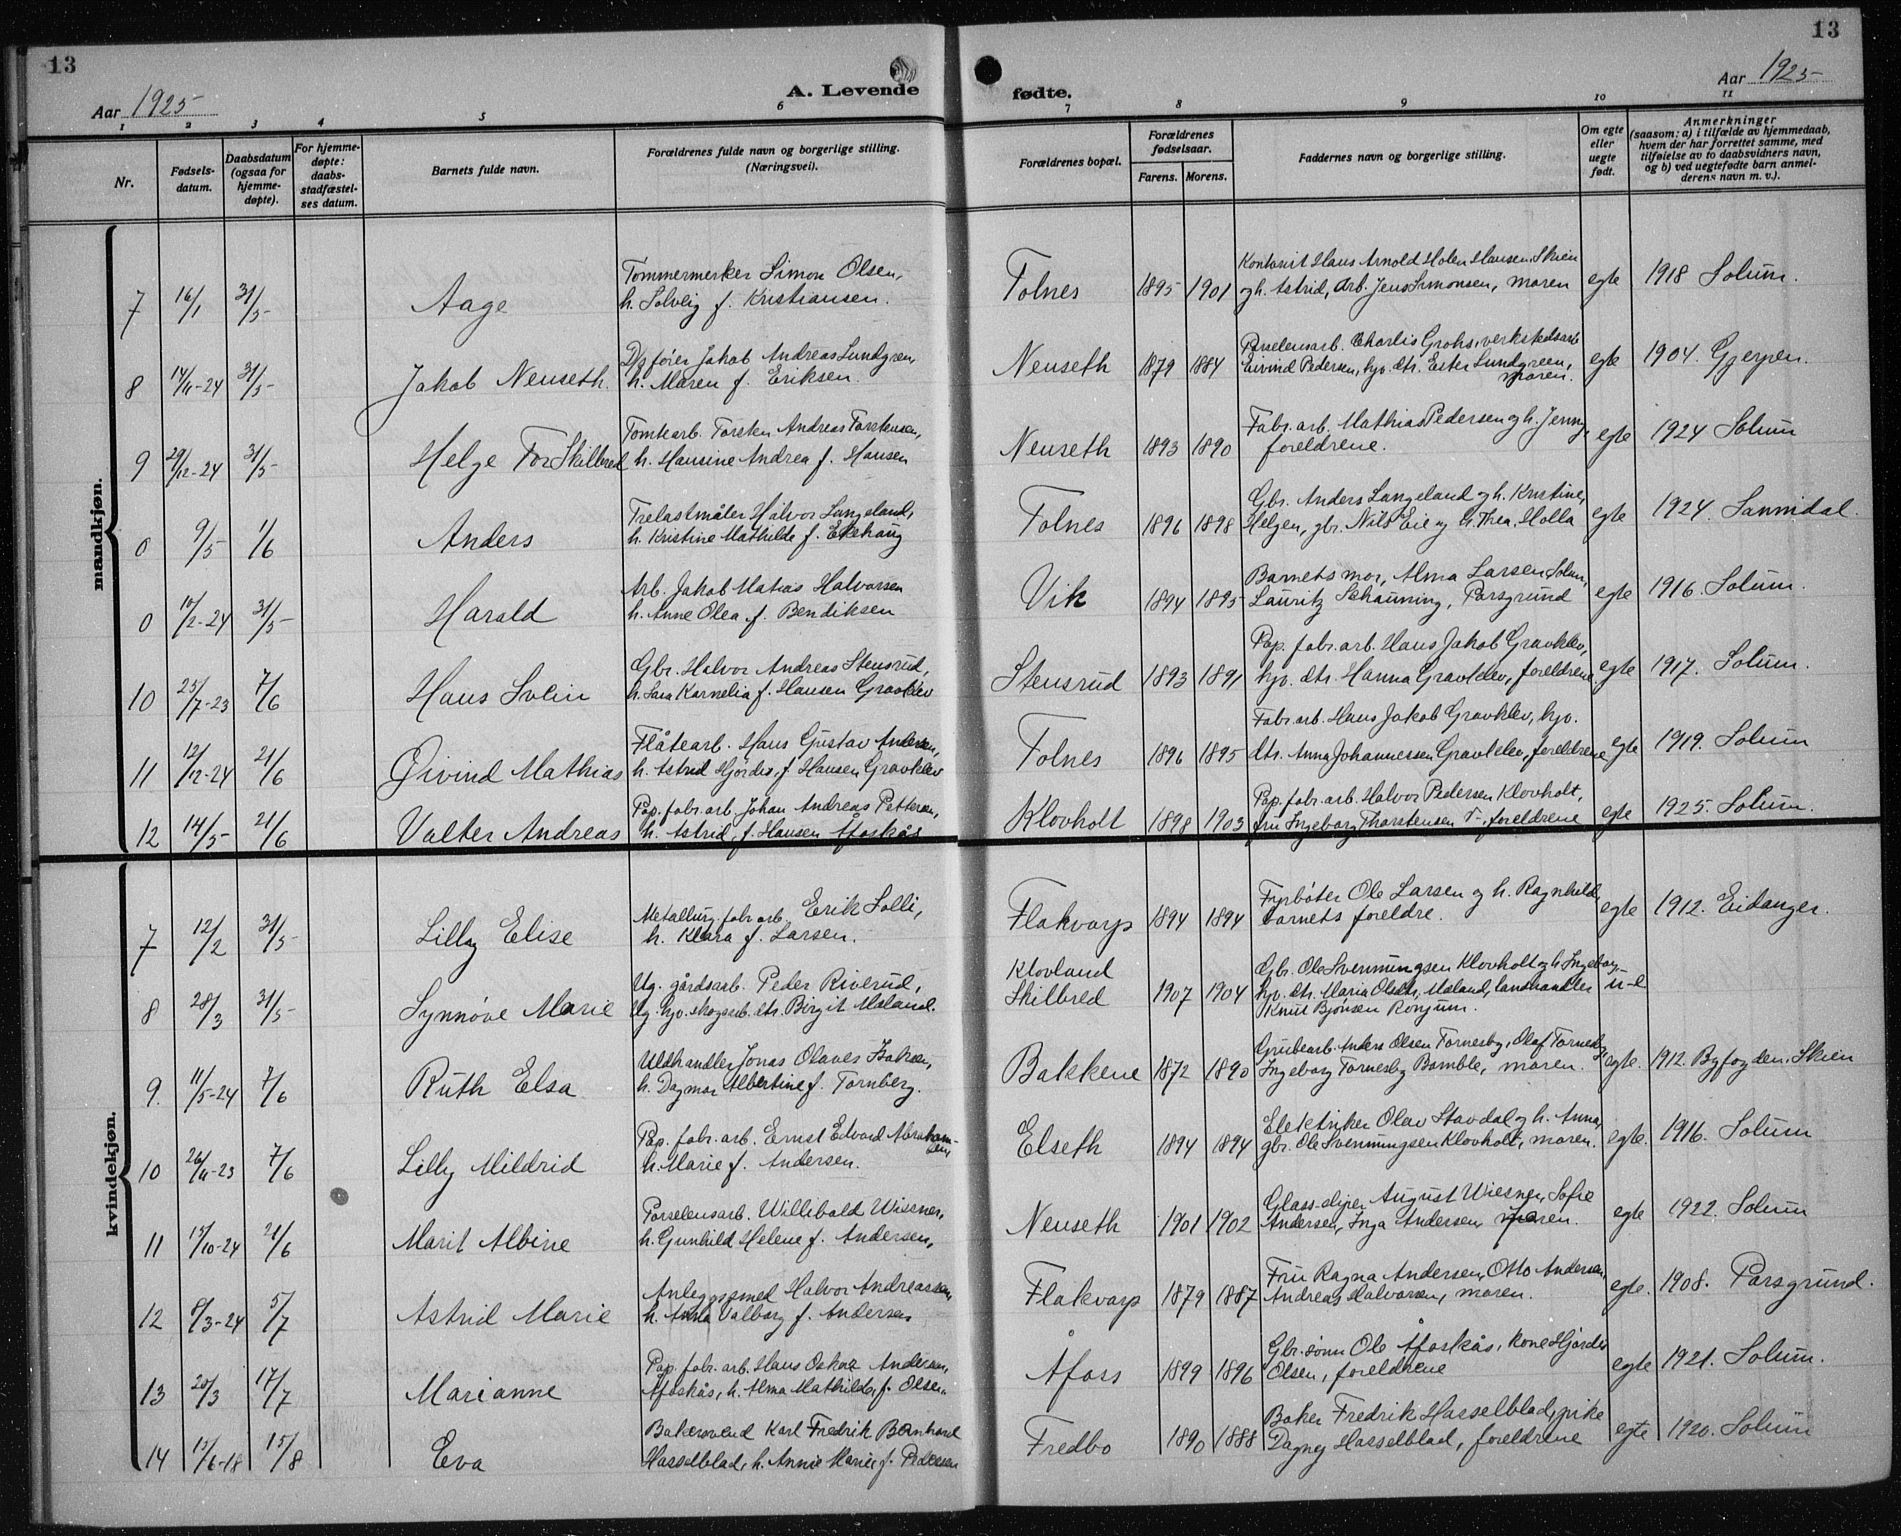 13
13
Aar 1925
A. Levende
fødte.
Aar 1925
1 2 3 4 5 6 7 8 9 10 11
Nr.
Fødsels-
datum.
Daabsdatum
(ogsaa for
hjemme-
døpte).
For hjemme-
døpte:
daabs-
stadfæstel-
ses datum.
Barnets fulde navn.
Forældrenes fulde navn og borgerlige stilling.
(Næringsvei).
Forældrenes bopæl.
Forældrenes
fødselsaar.
Farens. Morens.
Faddernes navn og borgerlige stilling.
Om egte
eller
uegte
født.
Anmerkninger
(saasom: a) i tilfælde av hjemmedaab,
hvem der har forrettet samme, med
tilføielse av to daabsvidners navn,
og b) ved uegtefødte barn anmel-
derens navn m. v.).
mandkjøn.
7 16/1 31/5 Aage
Tømmermerker Simon Olsen,
h. Solveig f. Kristiansen.
Tolnes 1895 1901
Kontorist Hans Arnold Holen Hansen Skien
og h. Astrid, arb. Jens Simonsen, moren
egte 1918 Solum.
8 14/11-24 31/5 Jakob Neuseth.
fører Jakob Andreas Lundgren,
h. Maren f. Eriksen.
Neuseth 1879 1884
Porselensarb. Charlis Grohs, verkstedsarb
Eivind Pedersen, hjv. dtr. Ester Lundgreen,
moren.
egte 1904. Gjerpen.
9 29/12-24 31/5 Helge Tor Skilbred
Tomtearb. Torsten Andreas Torstensen,
h. Hansine Andrea f. Hansen
Neuseth 1893 1890
Fabr. arb. Mathias Pedersen og h. Jenny,
foreldrene.
egte 1924 Solum
0 9/5 1/6 Anders
Trelastmåler Halvor Langeland,
h. Kristine Mathilde f. Ekehaug
Tolnes 1896 1898
Gbr. Anders Langeland og h. Kristine,
Helgen, gbr. Nils Eie og h. Thea, Holla
egte 1924. Sannidal.
0 10/2-24 31/5 Harald
Arb. Jakob Matias Halvorsen
h. Anne Olea f. Bendiksen
Vik 1894 1895
Barnets mor, Alma Larsen Solum,
Lauritz Schauning, Porsgrund
egte 1916. Solum.
10 25/7-23 7/6 Hans Svein
Gbr. Halvor Andreas Stensrud,
h. Sara Kornelia f. Hansen Gravklev
Stensrud 1893 1891
Pap. fabr. arb. Hans Jakob Gravklev,
hjv. dtr. Hanna Gravklev, foreldrene
egte 1917. Solum.
11 12/12-24 21/6 Øivind Mathias
Flåtearb. Hans Gustav Andersen,
h. Astrid Hjørdis, f. Hansen Gravklev
Tolnes 1896 1895
Fabr. arb. Hans Jakob Gravklev, hjv.
dtr. Anna Johannessen Gravklev, foreldrene
egte 1919. Solum
12 14/5 21/6 Valter Andreas
Pap. fabr. arb. Johan Andreas Pettersen,
h. Astrid, f. Hansen Åfoskås
Klovholt 1898 1903
Pap. fabr. arb. Halvor Pedersen Klovholt,
fru Ingeborg Thorstensen, foreldrene
egte 1925. Solum.
kvindekjøn.
7 12/2 31/5 Lilly Elise
Metallurg. fabr. arb. Erik Solli,
h. Klara f. Larsen.
Flakvarp 1894 1894
Fyrbøter Ole Larsen og h. Ragnhild
barnets foreldre.
egte 1912. Eidanger.
8 28/3 31/5 Synnøve Marie
Ug. gårdsarb. Peder Riverud,
Ug. hjv. skogsarb. dtr. Birgit Møland.
Klovland
Skilbred 1907 1904
Gbr. Ole Svenningsen Klovholt og h. Ingeborg,
hjv. dtr. Maria Olsdtr. Møland, landhandler
Knut Bjønsen Ronjum.
u-e
9. 11/5-24 7/6 Ruth Elsa
Uldhandler Jonas Olaves Isaksen,
h. Dagmar Albertine f. Tornberg.
Bakkene 1872 1890
Grubearb. Anders Olsen Tornesby, Olaf Tornesby,
Ingeborg Tornesby Bamble, moren.
egte. 1912. Byfogden. Skien
10 26/11-23 7/6 Lilly Mildrid
Pap. fabr. arb. Ernst Edvard Abraham-
sen,
h. Marie f. Andersen.
Elseth 1894 1894
Elektriker Olav Stavdal og h. Anna,
gbr. Ole Svenningsen Klovholt, moren.
egte. 1916. Solum
11 15/10-24 21/6 Marit Albine
Porselensarb. Willibald Wiesner,
h. Gunhild Helene f. Andersen,
Neuseth 1901 1902
Glass-sliper August Wiesner, Sofie
Andersen, Inga Andersen, moren.
egte 1922. Solum
12 8/3-24 5/7 Astrid Marie
Anleggssmed Halvor Andreassen
h. Anna Valborg f. Andersen
Flakvarp 1879 1887
Fru Ragna Andersen, Otto Andersen,
Andreas Halvorsen, moren.
egte. 1908. Porsgrund.
13 20/3 17/7 Marianne
Pap. fabr. arb. Hans Oskar Andersen,
Åfoskås, h. Alma Mathilde, f. Olsen
Åfoss 1899 1896
Gbr. sønn Ole Åfoskås, kone Hjørdis
Olsen, foreldrene
egte 1921. Solum.
14 15/6-18 15/8 Eva
Bakersvend Karl Fredrik Bernhard
Hasselblad, h. Annie Marie f. Pedersen
Fredbo 1890 1888
Baker Fredrik Hasselblad, pike
Dagny Hasselblad, foreldrene
egte 1920. Solum